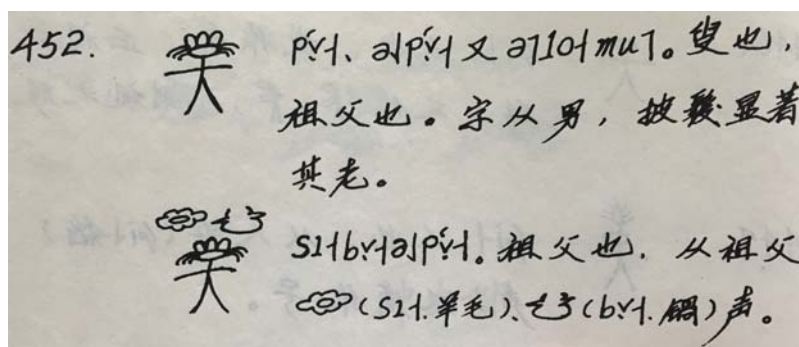 452. pv̩˧、ə˩pv̩˧又ə˥lo˧mu˥。叟也,
祖父也。字从男,披发显著
其老。
sɿ˧bv̩˧ə˩pv̩˧。祖父也,从祖父
(sɿ˧.羊毛)、(bv̩˧.锅)声。